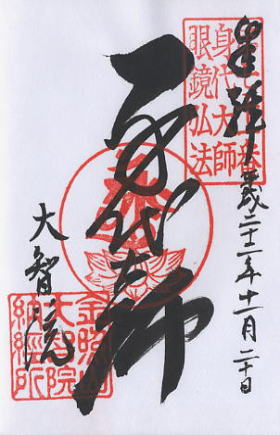 奉拝
平成二十二年十一月二十日
身代大師
眼鏡弘法
身代大師
大智院
金照山
大智院
納経所